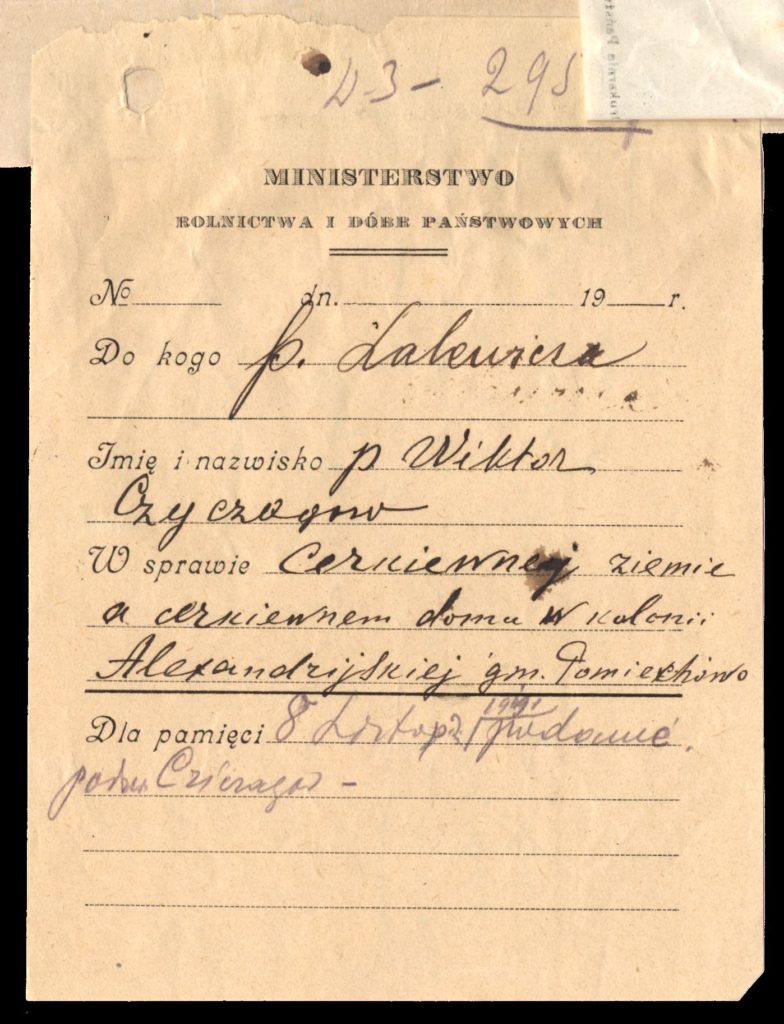 D-3- 295
MINISTERSTWO
ROLNICTWA I DÓBR PAŃSTWOWYCH
№ dn. 19 r.
Do kogo p. Zalewicza
Imię i nazwisko p Wiktor
Czyczagow
W sprawie Cerkiewnej ziemie
a cerkiewnem domu w kolonii
Alexandrijskiej gm. Pomiechowo
Dla pamięci 8 Listop. 1919 podanie
Cziczagow -